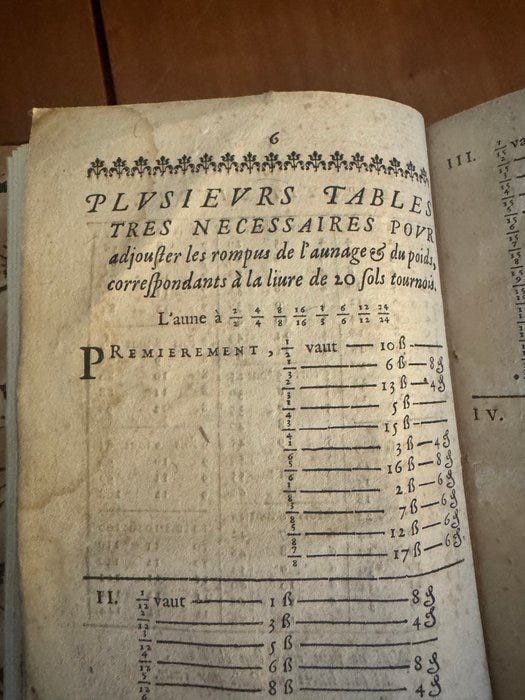 6
PLVSIEVRS TABLES
TRES NECESSAIRES POVR
adjouſter les rompus de l'aunage & du poids,
correſpondants à la liure de 20 ſols tournois.
L'aune à 2/2 4/4 8/8 16/16 3/3 6/6 12/12 24/24
PREMIEREMENT, 1/2 vaut — 10 ß —
1/3 — 6 ß — 8 ₰
2/3 — 13 ß — 4 ₰
1/4 — 5 ß —
3/4 — 15 ß —
1/6 — 3 ß — 4 ₰
5/6 — 16 ß — 8 ₰
1/8 — 2 ß — 6 ₰
3/8 — 7 ß — 6 ₰
5/8 — 12 ß — 6 ₰
7/8 — 17 ß — 6 ₰
II. 1/12 vaut — 1 ß — 8 ₰
2/12 — 3 ß — 4 ₰
3/12 — 5 ß —
4/12 — 6 ß — 8 ₰
5/12 — 8 ß — 4 ₰
III.
IV.